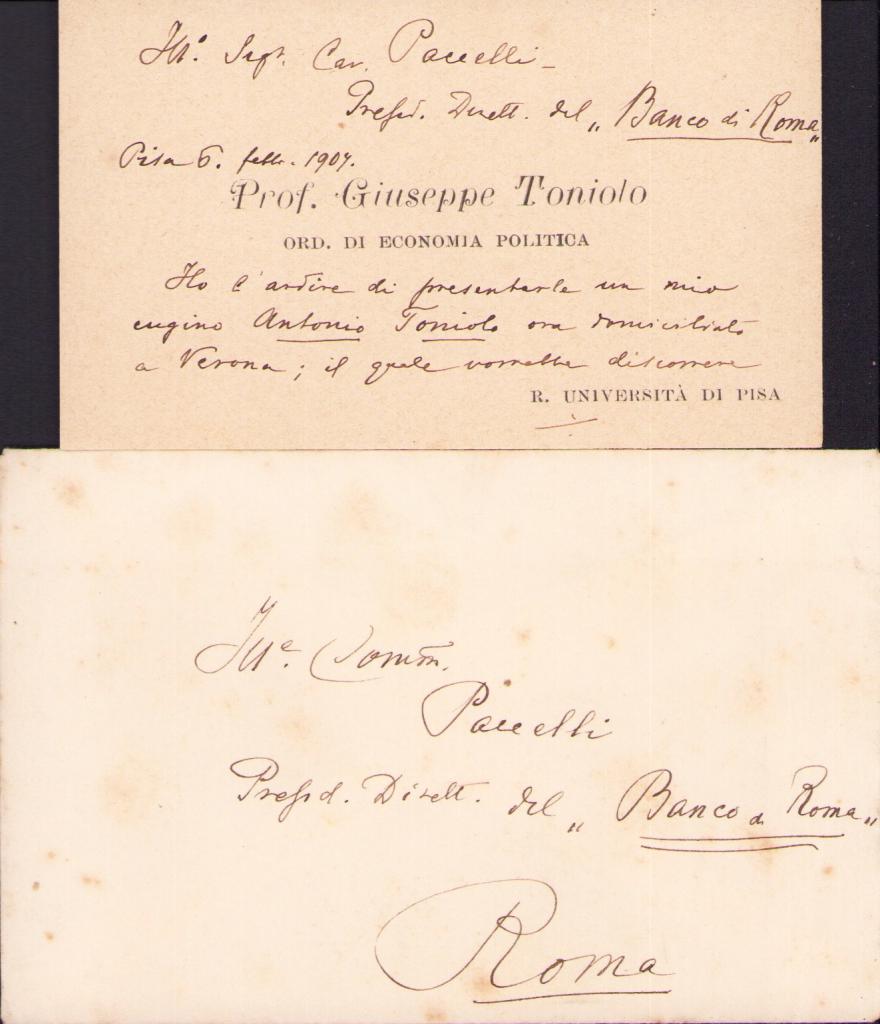 Ill.º Sigr. Cav. Pacelli -
Presid. Dirett. del „Banco di Roma„
Pisa 6. febb. 1907.
Prof. Giuseppe Toniolo
ORD. DI ECONOMIA POLITICA
Ho l'ardire di presentarle un mio
cugino Antonio Toniolo ora domiciliato
a Verona; il quale vorrebbe discorrere
R. UNIVERSITÀ DI PISA
Ill.e Comm.
Pacelli
Presid. Dirett. del „Banco di Roma„
Roma